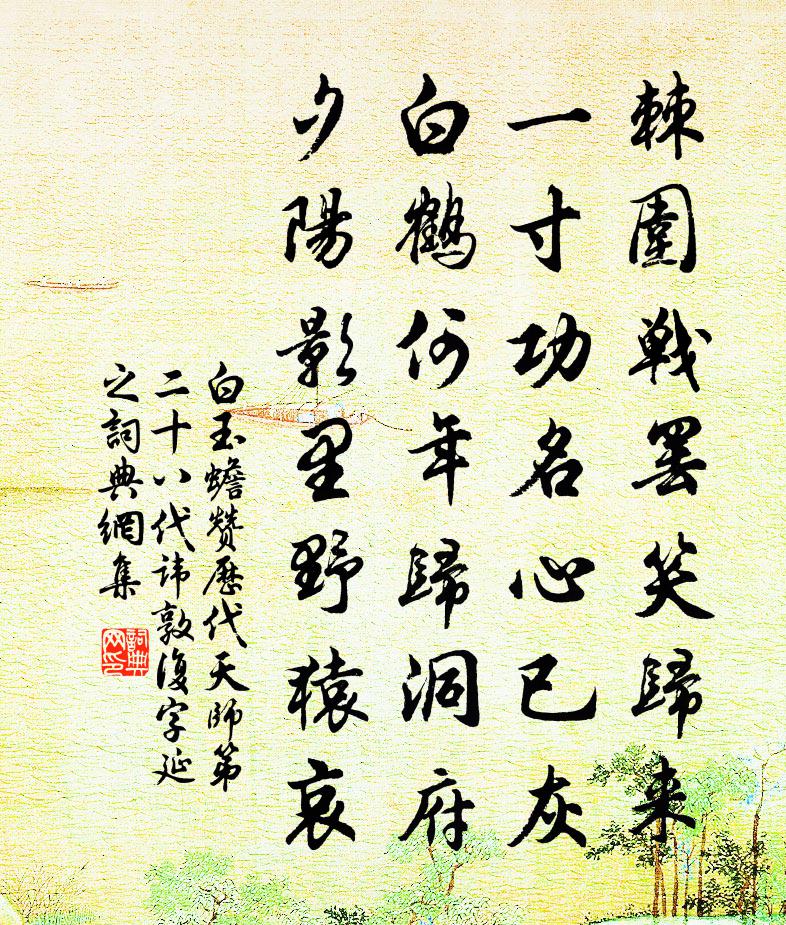 棘圍戰罢笑歸来
一寸功名心已灰
白鶴何年歸洞府
夕陽影里野猿哀
白玉蟾赞歷代天師第
二十八代諱敦復字延
之詞典網集
詞典网印